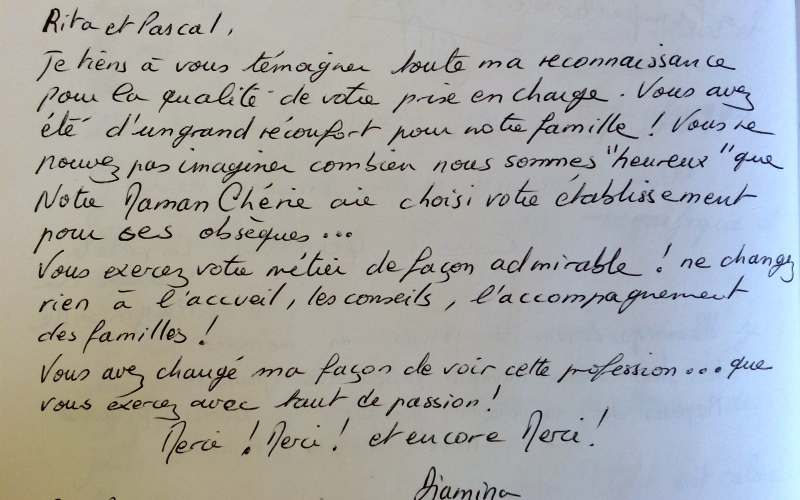 Rita et Pascal,
Je tiens à vous témoigner toute ma reconnaissance
pour la qualité de votre prise en charge. Vous avez
été d'un grand réconfort pour notre famille ! Vous ne
pouvez pas imaginer combien nous sommes "heureux" que
Notre Maman Chérie aie choisi votre établissement
pour ses obsèques...
Vous exercez votre métier de façon admirable ! ne changez
rien à l'accueil, les conseils, l'accompagnement
des familles !
Vous avez changé ma façon de voir cette profession... que
vous exercez avec tant de passion !
Merci ! Merci ! et encore Merci !